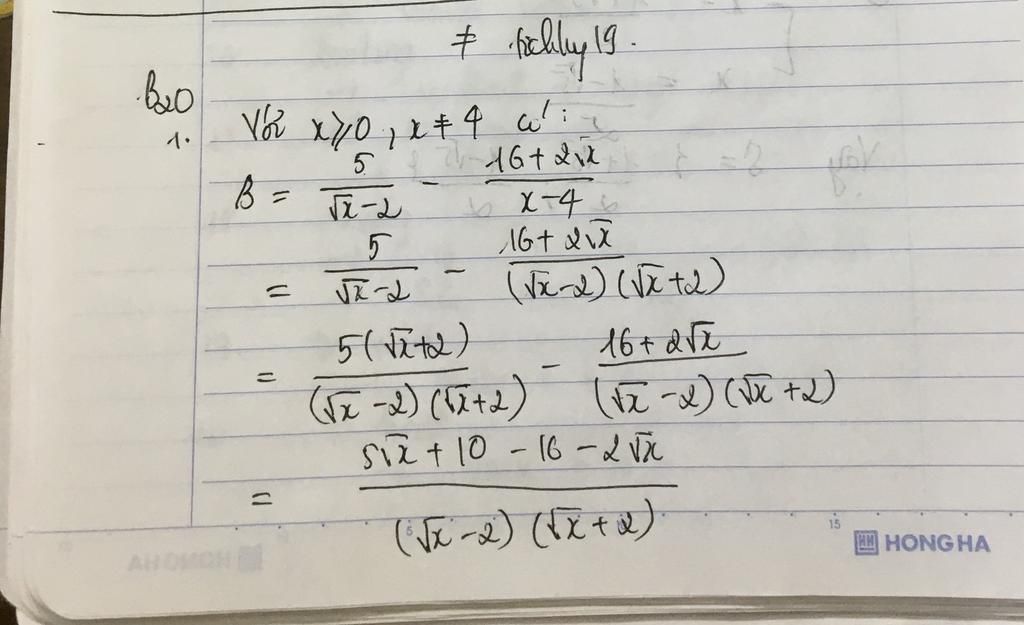 B20
1. Với x ⩾ 0, x ≠ 4 có:
B = 5/(√x-2) - (16+2√x)/(x-4)
= 5/(√x-2) - (16+2√x)/((√x-2)(√x+2))
= 5(√x+2)/((√x-2)(√x+2)) - (16+2√x)/((√x-2)(√x+2))
= (5√x+10-16-2√x)/((√x-2)(√x+2))
5
15
HONG HA